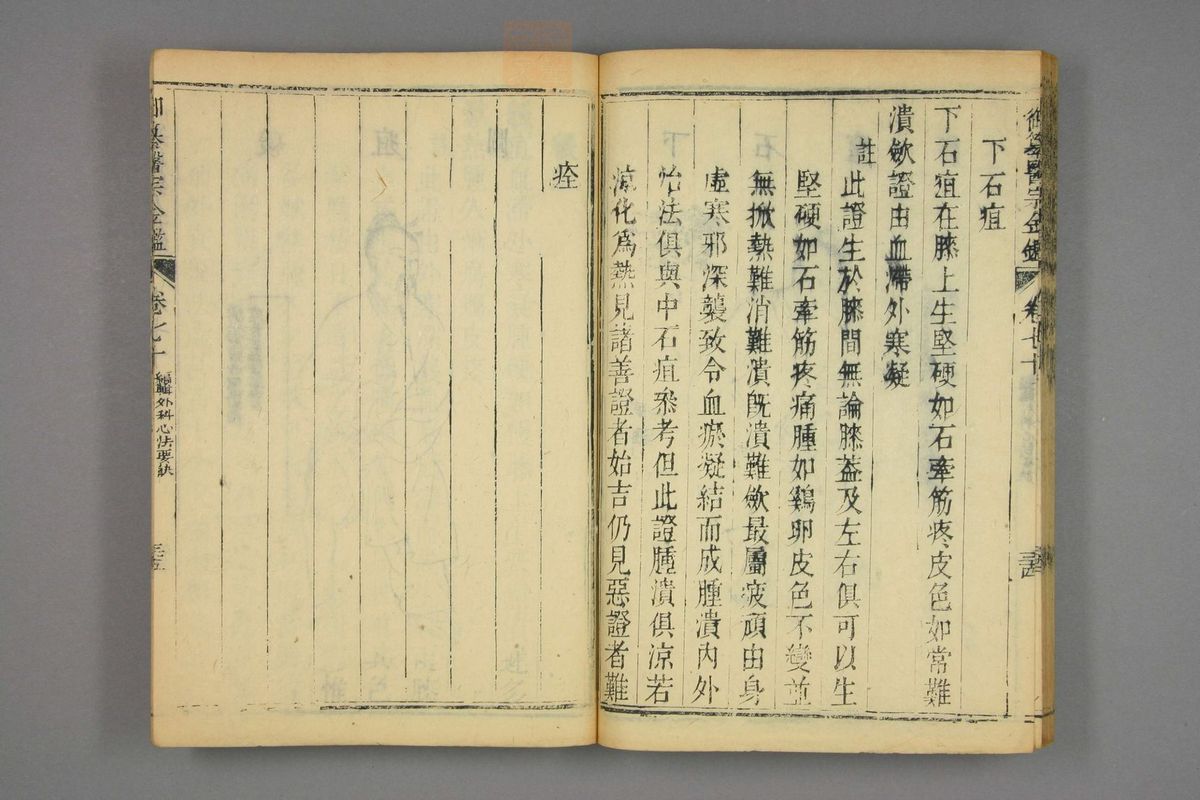 御纂醫宗金鑑 卷七十
下石疽
下石疽在膝上生堅硬如石牽筋疼皮色如常難
潰斂證由血滯外寒凝
註此證生於膝間無論膝蓋及左右俱可以生
堅硬如石牽筋疼痛腫如鷄卵皮色不變並
無掀熱難消難潰既潰難斂最屬疲頑由身
虛寒邪深襲致令血瘀凝結而成腫潰内外
治法俱與中石疽叅考但此證腫潰俱凉若
凉化為熱見諸善證者始吉仍見惡證者難
痊
御纂醫宗金鑑 卷七十 編輯外科心法要訣